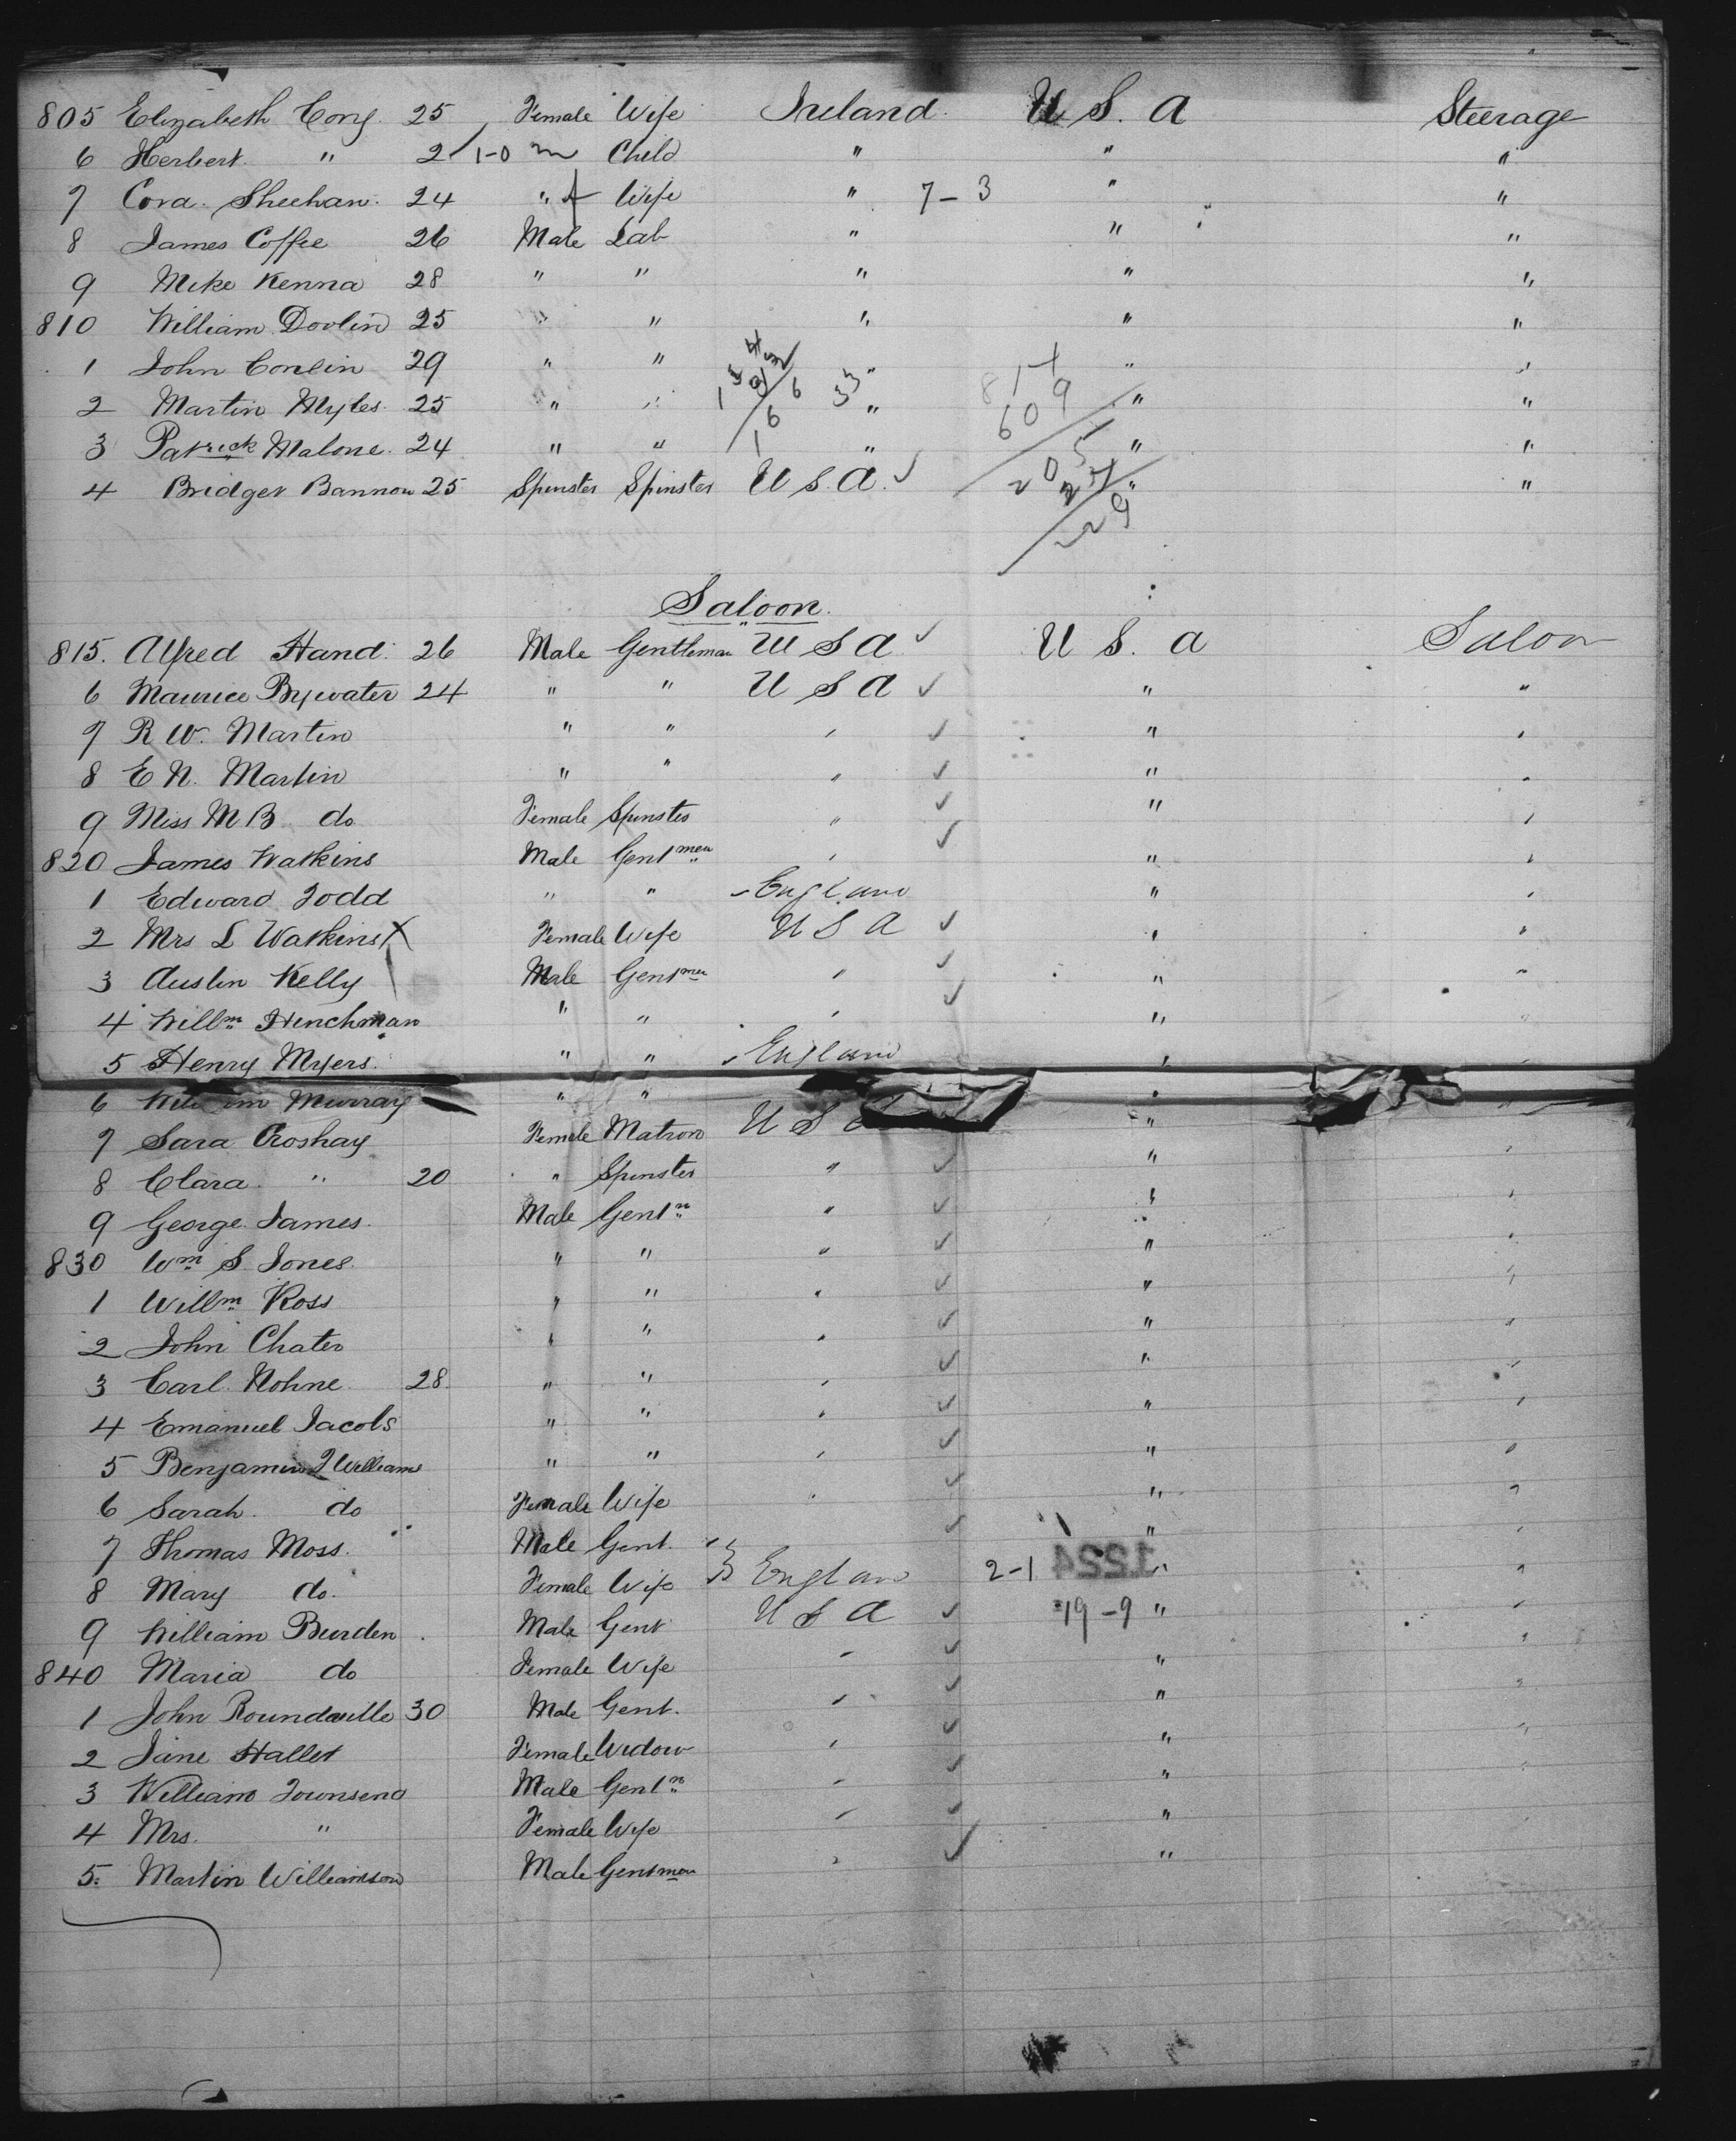 805 Elizabeth Cony. 25 Female Wife Ireland. U S. A Steerage
6 Herbert " 2 1-0 m Child " " "
7 Cora Sheehan. 24 " f Wife " 7-3 " "
8 James Coffee 26 Male Lab " " "
9 Mike Kenna 28 " " " " "
810 William Doolin 25 " " " " "
1 John Conlin 29 " " " " "
2 Martin Myles. 25 " " 33 " " "
3 Patrick Malone. 24 " " " " "
4 Bridget Bannon 25 Spinster Spinster U S. A. ✓ " "
814
609
205
24
229
166
Saloon.
815. Alfred Hand. 26 Male Gentleman U S A ✓ U S. A Saloon
6 Maurice Bywater 24 " " U S A ✓ " "
7 R W. Martin " " " ✓ " "
8 E N. Martin " " " ✓ " "
9 Miss M B do Female Spinster " ✓ " "
820 James Watkins Male Gentmen " ✓ " "
1 Edward Todd " " England " "
2 Mrs L Watkins X Female Wife U S A ✓ " "
3 Austin Kelly Male Gentmen " ✓ " "
4 Willm Hinchman " " " ✓ " "
5 Henry Myers. " " England " "
6 Murray " " " "
7 Sara Croshay Female Matron U S "
8 Clara " 20 " Spinster " ✓ " "
9 George James. Male Gentn " ✓ " "
830 Wm S. Jones " " " ✓ " "
1 Willm Ross " " " ✓ " "
2 John Chater " " " ✓ " "
3 Carl Nohne 28. " " " ✓ " "
4 Emanuel Jacobs " " " ✓ " "
5 Benjamin J Williams " " " ✓ " "
6 Sarah. do Female Wife " ✓ " "
7 Thomas Moss. Male Gent. " ✓ " "
8 Mary do. Female Wife } England 2-1 1224 " "
9 William Burden. Male Gent U S A ✓ 19-9 " "
840 Maria do Female Wife " ✓ " "
1 John Roundaville 30 Male Gent. " ✓ " "
2 Jane Hallet Female Widow " ✓ " "
3 William Townsend Male Gentn " ✓ " "
4 Mrs. " Female Wife " ✓ "
5. Martin Williamson Male Gentmen " ✓ "